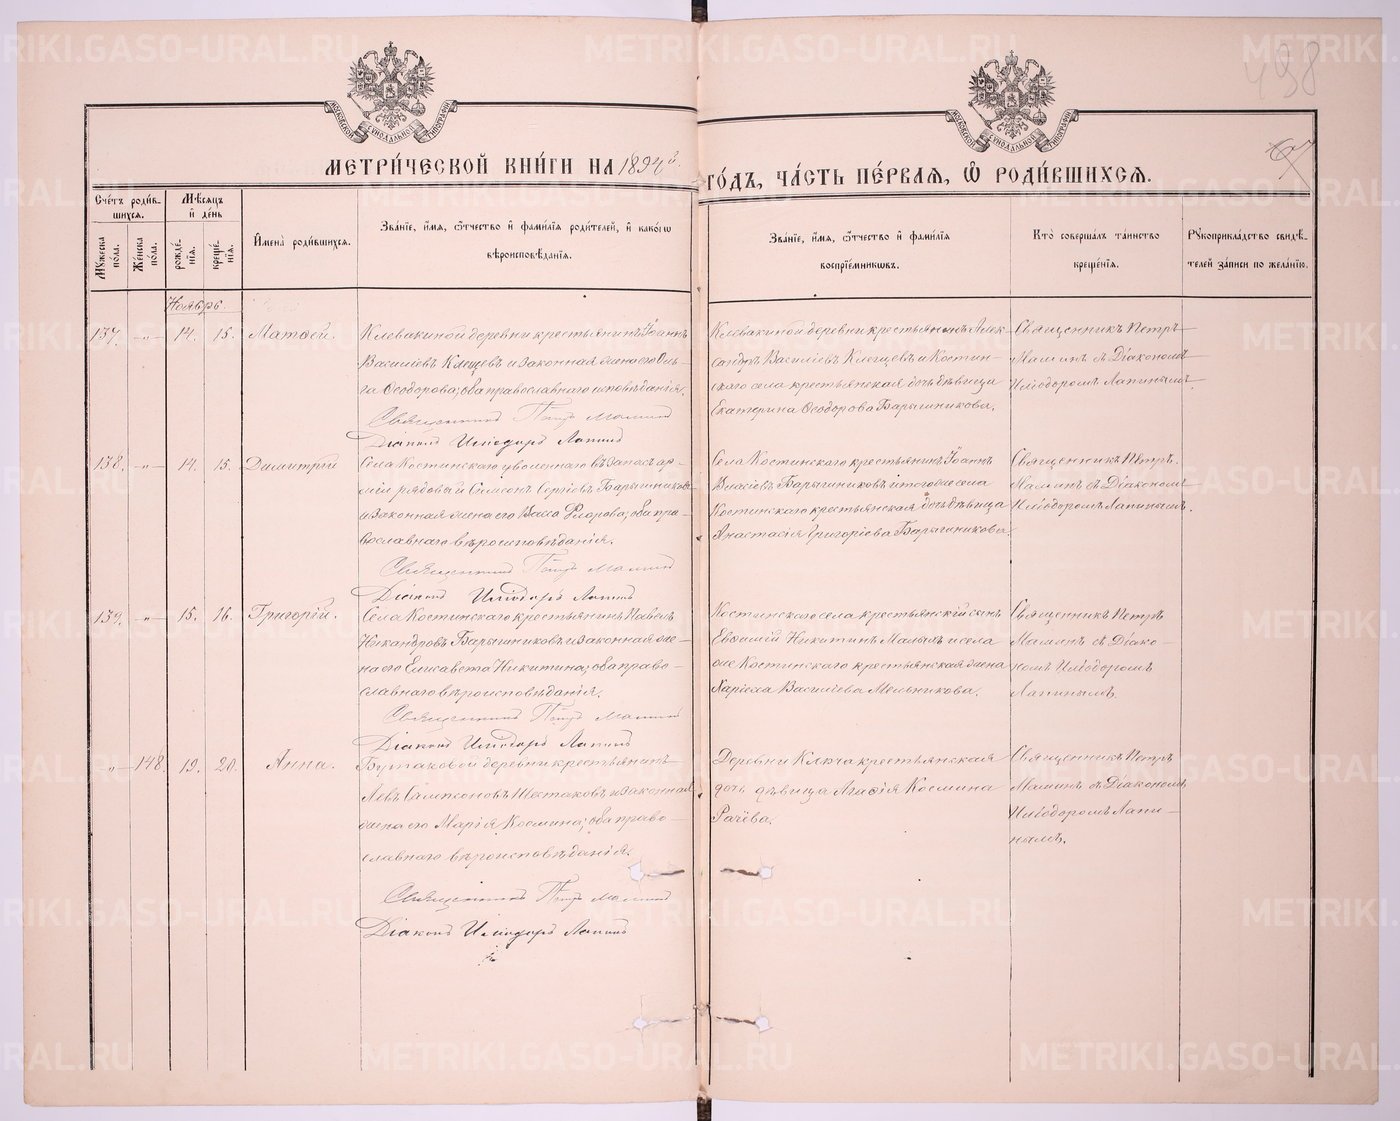 498
67
МОСКОВСКОЙ СѴНОДАЛЬНОЙ ТИПОГРАФІИ
МОСКОВСКОЙ СѴНОДАЛЬНОЙ ТИПОГРАФІИ
МЕТРИ́ЧЕСКОЙ КНИ́ГИ НА 1894 ГО́ДЪ, ЧА́СТЬ ПЕ́РВАЯ, Ѽ РОДИ́ВШИХСЯ.
Сче́тъ роди́в-
шихся.
Му́жеска
пола.
Же́нска
по́ла.
Мѣ́сяцъ
и҆ де́нь
рожде́-
нїя.
креще́-
нїя.
И҆мена̀ роди́вшихся.
Зва́нїе, и҆́мя, ѻ҆́тчество и҆ фами́лїя роди́телей, и҆ како́гѡ
вѣроисповѣ́данїя.
Зва́нїе, и҆́мя, ѻ҆́тчество и҆ фами́лїя
воспрїе́мникѡвъ.
Кто̀ соверша́лъ та́инство
креще́нїя.
Рꙋкоприкла́дство свидѣ́-
телей за́писи по жела́нїю.
Ноябрь.
137. -„- 14. 15. Матѳей.
Клевакиной деревни крестьянинъ Іоаннъ
Василіевъ Клещевъ и законная жена его Оль-
га Ѳеодорова; оба православнаго исповѣданія.
Священникъ Петръ Маминъ
Діаконъ Иліодоръ Лапинъ
Клевакиной деревни крестьянинъ Алек-
сандръ Василіевъ Клещевъ и Костин-
скаго села крестьянская дочь дѣвица
Екатерина Ѳеодорова Барышникова.
Священникъ Петръ
Маминъ съ Діакономъ
Иліодоромъ Лапинымъ.
138. -„- 14. 15. Димитрій
Села Костинскаго уволеннаго въ запасъ ар-
міи рядовый Симеонъ Сергіевъ Барышниковъ
и законная жена его Васса Флорова; оба пра-
вославнаго вѣроисповѣданія.
Священникъ Петръ Маминъ
Діаконъ Иліодоръ Лапинъ
Села Костинскаго крестьянинъ Іоаннъ
Власіевъ Барышниковъ и того же села
Костинскаго крестьянская дочь дѣвица
Анастасія Григоріева Барышникова.
Священникъ Петръ
Маминъ съ Діакономъ
Иліодоромъ Лапинымъ.
139. -„- 15. 16. Григорій.
Села Костинскаго крестьянинъ Павелъ
Никандровъ Барышниковъ и законная же-
на его Елисавета Никитина; оба право-
славнаго вѣроисповѣданія.
Священникъ Петръ Маминъ
Діаконъ Иліодоръ Лапинъ
Костинскаго села крестьянскій сынъ
Евѳимій Никитинъ Малыхъ и села
же Костинскаго крестьянская жена
Василіева Мельникова.
Священникъ Петръ
Маминъ съ Діако-
номъ Иліодоромъ
Лапинымъ.
-„- 148. 19. 20. Анна.
Бутаковой деревни крестьянинъ
Левъ Сампсоновъ Шестаковъ и законная
жена его Марія Космина; оба право-
славнаго вѣроисповѣданія.
Священникъ Петръ Маминъ
Діаконъ Иліодоръ Лапинъ
Деревни Ключа крестьянская
дочь дѣвица Агафія Космина
Рачева.
Священникъ Петръ
Маминъ съ Діакономъ
Иліодоромъ Лапи-
нымъ.
METRIKI.GASO-URAL.RU